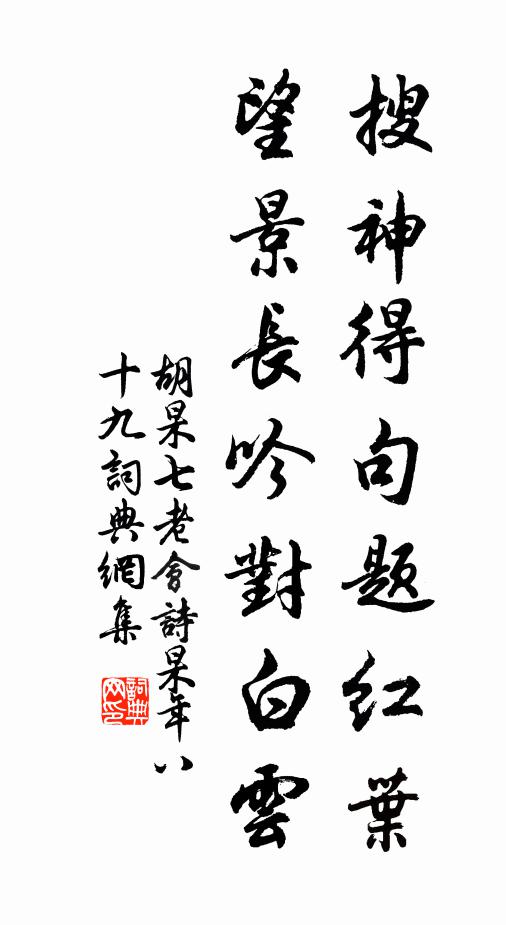 搜神得句题红葉
望景長吟對白雲
胡杲七老會詩杲年八
十九詞典網集
詞典网印